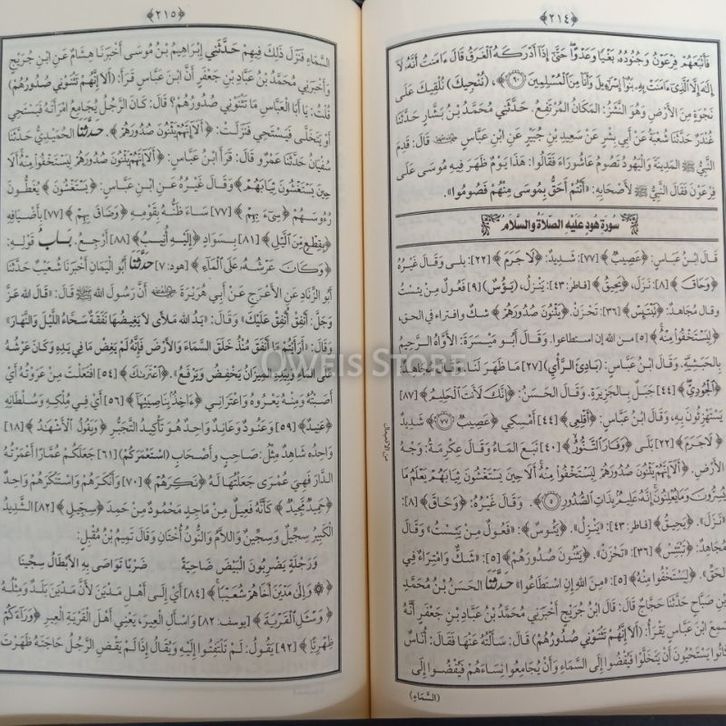 ﴿٢١٤﴾
فَأَتْبَعَهُمْ فِرْعَوْنُ وَجُنُودُهُ بَغْيًا وَعَدْوًا حَتَّى إِذَا أَدْرَكَهُ الْغَرَقُ قَالَ ءَامَنتُ أَنَّهُ لَا
إِلَهَ إِلَّا الَّذِي ءَامَنَتْ بِهِ بَنُوا إِسْرَءِيلَ وَأَنَا مِنَ الْمُسْلِمِينَ ﴾، ﴿نُنَجِّيكَ﴾ نُلْقِيكَ عَلَى
نَجْوَةٍ مِنَ الْأَرْضِ وَهُوَ النَّشَزُ: الْمَكَانُ الْمُرْتَفِعُ. حَدَّثَنِي مُحَمَّدُ بْنُ بَشَّارٍ حَدَّثَنَا
غُنْدَرٌ حَدَّثَنَا شُعْبَةُ عَنْ أَبِي بِشْرٍ عَنْ سَعِيدِ بْنِ جُبَيْرٍ عَنِ ابْنِ عَبَّاسٍ قَالَ: قَدِمَ
النَّبِيُّ ﷺ الْمَدِينَةَ وَالْيَهُودُ تَصُومُ عَاشُورَاءَ فَقَالُوا: هَذَا يَوْمٌ ظَهَرَ فِيهِ مُوسَى عَلَى
فِرْعَوْنَ فَقَالَ النَّبِيُّ ﷺ لِأَصْحَابِهِ: «أَنْتُمْ أَحَقُّ بِمُوسَى مِنْهُمْ فَصُومُوا».
سُورَة هُودٍ عَلَيْهِ الصَّلَاةُ وَالسَّلَام
قَالَ ابْنُ عَبَّاسٍ: ﴿عَصِيبٌ﴾ [٧٧]: شَدِيدٌ. ﴿لَا جَرَمَ﴾ [٢٢]: بَلَى وَقَالَ غَيْرُهُ
﴿وَحَاقَ﴾ [٨]: نَزَلَ، ﴿يَحِيقُ﴾ [فاطر:٤٣]: يَنْزِلُ، ﴿يَئُوسٌ﴾ [٩] فَعُولٌ مِنْ يَئِسْتُ
وَقَالَ مُجَاهِدٌ: ﴿تَبْتَئِسْ﴾ [٣٦]: تَحْزَنْ. ﴿يَثْنُونَ صُدُورَهُمْ﴾ شك وافتراء في الحق،
﴿لِيَسْتَخْفُوا مِنْهُ﴾ [٥] من الله إن استطاعوا. وَقَالَ أَبُو مَيْسَرَةَ: الْأَوَّاهُ الرَّحِيمُ
بِالْحَبَشِيَّةِ. وَقَالَ ابْنُ عَبَّاسٍ: ﴿بَادِيَ الرَّأْيِ﴾ [٢٧] مَا ظَهَرَ لَنَا. وَقَالَ مُجَاهِدٌ:
﴿الْجُودِيِّ﴾ [٤٤] جَبَلٌ بِالْجَزِيرَةِ. وَقَالَ الْحَسَنُ: ﴿إِنَّكَ لَأَنتَ الْحَلِيمُ﴾ [٨٧]
يَسْتَهْزِئُونَ بِهِ، وَقَالَ ابْنُ عَبَّاسٍ: ﴿أَقْلِعِي﴾ [٤٤] أَمْسِكِي ﴿عَصِيبٌ﴾ شَدِيدٌ
﴿لَا جَرَمَ﴾ [٢٢] بَلَى، ﴿وَفَارَ التَّنُّورُ﴾ [٤٠] نَبَعَ الْمَاءُ وَقَالَ عِكْرِمَةُ: وَجْهُ
الْأَرْضِ. ﴿أَلَا إِنَّهُمْ يَثْنُونَ صُدُورَهُمْ لِيَسْتَخْفُوا مِنْهُ أَلَا حِينَ يَسْتَغْشُونَ ثِيَابَهُمْ يَعْلَمُ مَا
يُسِرُّونَ وَمَا يُعْلِنُونَ إِنَّهُ عَلِيمٌ بِذَاتِ الصُّدُورِ﴾. وَقَالَ غَيْرُهُ: ﴿وَحَاقَ﴾ [٨]:
نَزَلَ. ﴿يَحِيقُ﴾ [فاطر: ٤٣]: «يَنْزِلُ». ﴿يَئُوسٌ﴾: «فَعُولٌ مِنْ يَئِسْتُ» وَقَالَ
مُجَاهِدٌ: ﴿تَبْتَئِسْ﴾ [٣٦]: «تَحْزَنْ». ﴿يَثْنُونَ صُدُورَهُمْ﴾ [٥]: «شَكٌّ وَامْتِرَاءٌ فِي
الْحَقِّ». ﴿لِيَسْتَخْفُوا مِنْهُ﴾ [٥]: «مِنَ اللهِ إِنِ اسْتَطَاعُوا» حَدَّثَنَا الْحَسَنُ بْنُ مُحَمَّدِ
بْنِ صَبَّاحٍ حَدَّثَنَا حَجَّاجٌ قَالَ: قَالَ ابْنُ جُرَيْجٍ أَخْبَرَنِي مُحَمَّدُ بْنُ عَبَّادِ بْنِ جَعْفَرٍ أَنَّهُ
سَمِعَ ابْنَ عَبَّاسٍ يَقْرَأُ: (أَلَا إِنَّهُمْ تَثْنَوْنِي صُدُورُهُمْ) قَالَ: سَأَلْتُهُ عَنْهَا فَقَالَ: أُنَاسٌ
كَانُوا يَسْتَحْيُونَ أَنْ يَتَخَلَّوْا فَيُفْضُوا إِلَى السَّمَاءِ وَأَنْ يُجَامِعُوا نِسَاءَهُمْ فَيُفْضُوا إِلَى
(السَّمَاءِ)
﴿٢١٥﴾
السَّمَاءِ فَنَزَلَ ذَلِكَ فِيهِمْ حَدَّثَنِي إِبْرَاهِيمُ بْنُ مُوسَى أَخْبَرَنَا هِشَامٌ عَنِ ابْنِ جُرَيْجٍ
وَأَخْبَرَنِي مُحَمَّدُ بْنُ عَبَّادِ بْنِ جَعْفَرٍ أَنَّ ابْنَ عَبَّاسٍ قَرَأَ: (أَلَا إِنَّهُمْ تَثْنَوْنِي صُدُورُهُمْ)
قُلْتُ: يَا أَبَا الْعَبَّاسِ مَا تَثْنَوْنِي صُدُورُهُمْ؟ قَالَ: كَانَ الرَّجُلُ يُجَامِعُ امْرَأَتَهُ فَيَسْتَحِي
أَوْ يَتَخَلَّى فَيَسْتَحِي فَنَزَلَتْ: ﴿أَلَا إِنَّهُمْ يَثْنُونَ صُدُورَهُمْ﴾. حَدَّثَنَا الْحُمَيْدِيُّ حَدَّثَنَا
سُفْيَانُ حَدَّثَنَا عَمْرٌو قَالَ: قَرَأَ ابْنُ عَبَّاسٍ: ﴿أَلَا إِنَّهُمْ يَثْنُونَ صُدُورَهُمْ لِيَسْتَخْفُوا مِنْهُ أَلَا
حِينَ يَسْتَغْشُونَ ثِيَابَهُمْ﴾ وَقَالَ غَيْرُهُ عَنِ ابْنِ عَبَّاسٍ: ﴿يَسْتَغْشُونَ﴾ يُغَطُّونَ
رُءُوسَهُمْ ﴿سِيءَ بِهِمْ﴾ [٧٧] سَاءَ ظَنُّهُ بِقَوْمِهِ ﴿وَضَاقَ بِهِمْ﴾ [٧٧] بِأَضْيَافِهِ
﴿بِقِطْعٍ مِنَ اللَّيْلِ﴾ [٨١] بِسَوَادٍ ﴿إِلَيْهِ أُنِيبُ﴾ [٨٨] أَرْجِعُ. بَابُ قَوْلِهِ:
﴿وَكَانَ عَرْشُهُ عَلَى الْمَاءِ﴾ [هود: ٧] حَدَّثَنَا أَبُو الْيَمَانِ أَخْبَرَنَا شُعَيْبٌ حَدَّثَنَا
أَبُو الزِّنَادِ عَنِ الْأَعْرَجِ عَنْ أَبِي هُرَيْرَةَ أَنَّ رَسُولَ اللهِ ﷺ قَالَ: «قَالَ اللهُ عَزَّ
وَجَلَّ: أَنْفِقْ أُنْفِقْ عَلَيْكَ» وَقَالَ: «يَدُ اللهِ مَلْأَى لَا يَغِيضُهَا نَفَقَةٌ سَحَّاءُ اللَّيْلَ وَالنَّهَارَ»
وَقَالَ: «أَرَأَيْتُمْ مَا أَنْفَقَ مُنْذُ خَلَقَ السَّمَاءَ وَالْأَرْضَ فَإِنَّهُ لَمْ يَغِضْ مَا فِي يَدِهِ وَكَانَ عَرْشُهُ
عَلَى الْمَاءِ وَبِيَدِهِ الْمِيزَانُ يَخْفِضُ وَيَرْفَعُ». ﴿اعْتَرَاكَ﴾ [٥٤] افْتَعَلْتَ مِنْ عَرَوْتُهُ أَيْ
أَصَبْتُهُ وَمِنْهُ يَعْرُوهُ وَاعْتَرَانِي ﴿ءَاخِذٌ بِنَاصِيَتِهَا﴾ [٥٦] أَيْ فِي مُلْكِهِ وَسُلْطَانِهِ
﴿عَنِيدٍ﴾ [٥٩] وَعَنُودٌ وَعَانِدٌ وَاحِدٌ هُوَ تَأْكِيدُ التَّجَبُّرِ ﴿وَيَقُولُ الْأَشْهَادُ﴾ [١٨]
وَاحِدُهُ شَاهِدٌ مِثْلُ: صَاحِبٍ وَأَصْحَابٍ ﴿اسْتَعْمَرَكُمْ﴾ [٦١] جَعَلَكُمْ عُمَّارًا أَعْمَرْتُهُ
الدَّارَ فَهِيَ عُمْرَى جَعَلْتُهَا لَهُ ﴿نَكِرَهُمْ﴾ [٧٠] وَأَنْكَرَهُمْ وَاسْتَنْكَرَهُمْ وَاحِدٌ
﴿حَمِيدٌ مَجِيدٌ﴾ كَأَنَّهُ فَعِيلٌ مِنْ مَاجِدٍ مَحْمُودٌ مِنْ حَمِدَ ﴿سِجِّيلٍ﴾ [٨٢] الشَّدِيدُ
الْكَبِيرُ سِجِّيلٌ وَسِجِّينٌ وَاللَّامُ وَالنُّونُ أُخْتَانِ وَقَالَ تَمِيمُ بْنُ مُقْبِلٍ:
وَرَجْلَةٍ يَضْرِبُونَ الْبَيْضَ ضَاحِيَةً ضَرْبًا تَوَاصَى بِهِ الْأَبْطَالُ سِجِّينَا
﴿وَإِلَى مَدْيَنَ أَخَاهُمْ شُعَيْبًا﴾ [٨٤] أَيْ إِلَى أَهْلِ مَدْيَنَ لِأَنَّ مَدْيَنَ بَلَدٌ وَمِثْلُهُ
﴿وَسْئَلِ الْقَرْيَةَ﴾ [يوسف: ٨٢] وَاسْأَلِ الْعِيرَ، يَعْنِي أَهْلَ الْقَرْيَةِ الْعِيرِ ﴿وَرَاءَكُمْ
ظِهْرِيًّا﴾ [٩٢] يَقُولُ: لَمْ تَلْتَفِتُوا إِلَيْهِ وَيُقَالُ إِذَا لَمْ يَقْضِ الرَّجُلُ حَاجَتَهُ ظَهَرْتَ
Oweis Store